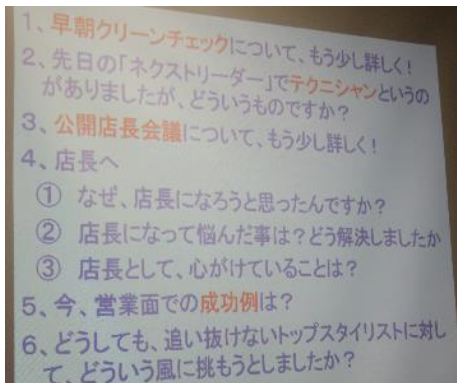 1、早朝クリーンチェックについて、もう少し詳しく！
2、先日の「ネクストリーダー」でテクニシャンというの
がありましたが、どういうものですか？
3、公開店長会議について、もう少し詳しく！
4、店長へ
① なぜ、店長になろうと思ったんですか？
② 店長になって悩んだ事は？どう解決しましたか
③ 店長として、心がけていることは？
5、今、営業面での成功例は？
6、どうしても、追い抜けないトップスタイリストに対し
て、どういう風に挑もうとしましたか？